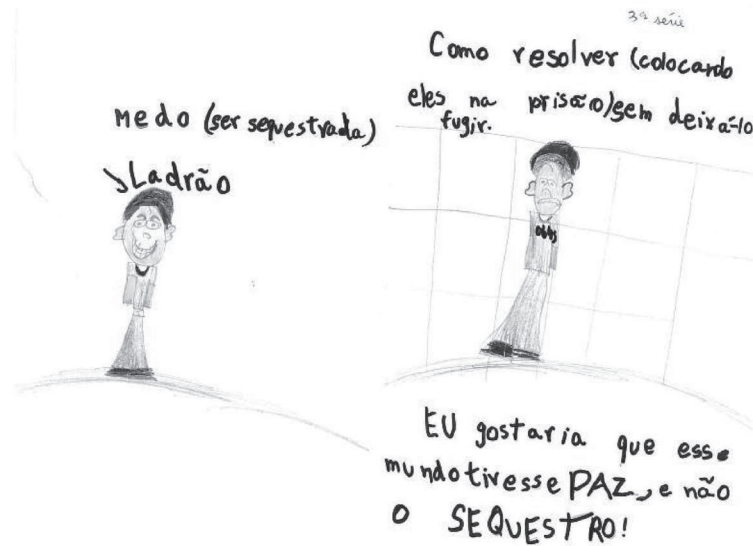 medo (ser sequestrada)
Ladrão
3ª série
Como resolver (colocando
eles na prisão) sem deixá-lo
fugir.
EU gostaria que esse
mundo tivesse PAZ, e não
o SEQUESTRO!